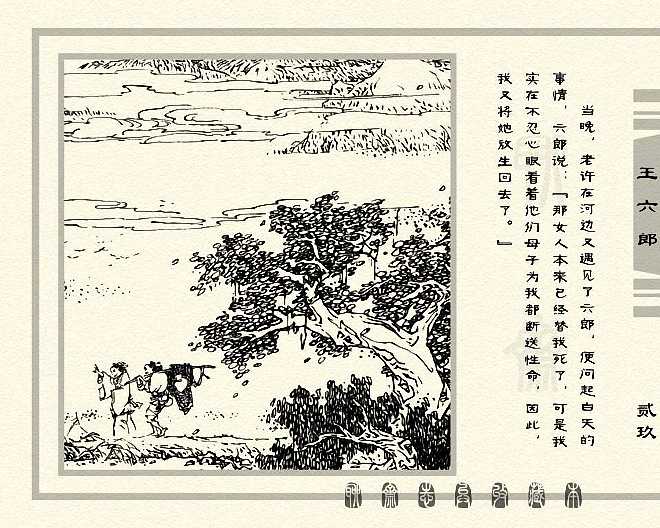 当晚，老许在河边又遇见了六郎，便问起白天的
事情，六郎说：「那女人本来已经替我死了，可是我
实在不忍心眼看着他们母子为我都断送性命，因此，
我又将她放生回去了。」
王六郎
贰玖